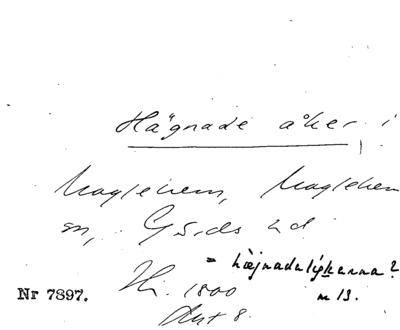 Hägnade åker i
Maglehem, Maglehem
sn, Gärds hd
= hägnadalyckanna?
Hi. 1800
n 13.
Nr 7897.
Akt 8.